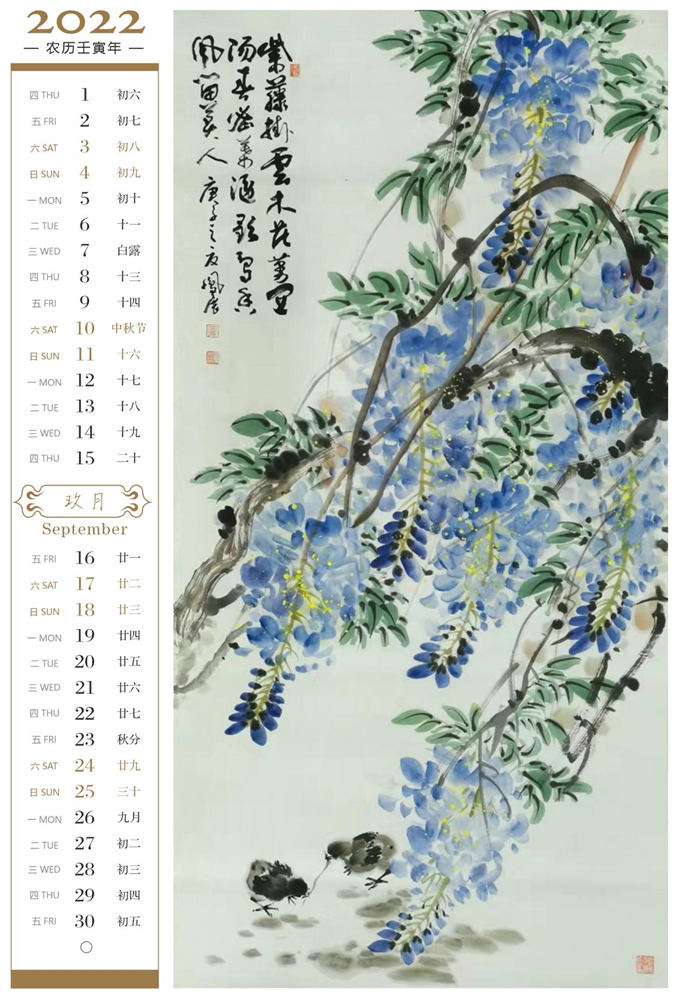 2022
— 农历壬寅年 —
四 THU 1 初六
五 FRI 2 初七
六 SAT 3 初八
日 SUN 4 初九
一 MON 5 初十
二 TUE 6 十一
三 WED 7 白露
四 THU 8 十三
五 FRI 9 十四
六 SAT 10 中秋节
日 SUN 11 十六
一 MON 12 十七
二 TUE 13 十八
三 WED 14 十九
四 THU 15 二十
玖月
September
五 FRI 16 廿一
六 SAT 17 廿二
日 SUN 18 廿三
一 MON 19 廿四
二 TUE 20 廿五
三 WED 21 廿六
四 THU 22 廿七
五 FRI 23 秋分
六 SAT 24 廿九
日 SUN 25 三十
一 MON 26 九月
二 TUE 27 初二
三 WED 28 初三
四 THU 29 初四
五 FRI 30 初五
紫藤掛雲木花蔓宜
陽春密葉隱歌鳥香
風留美人 庚子之夏